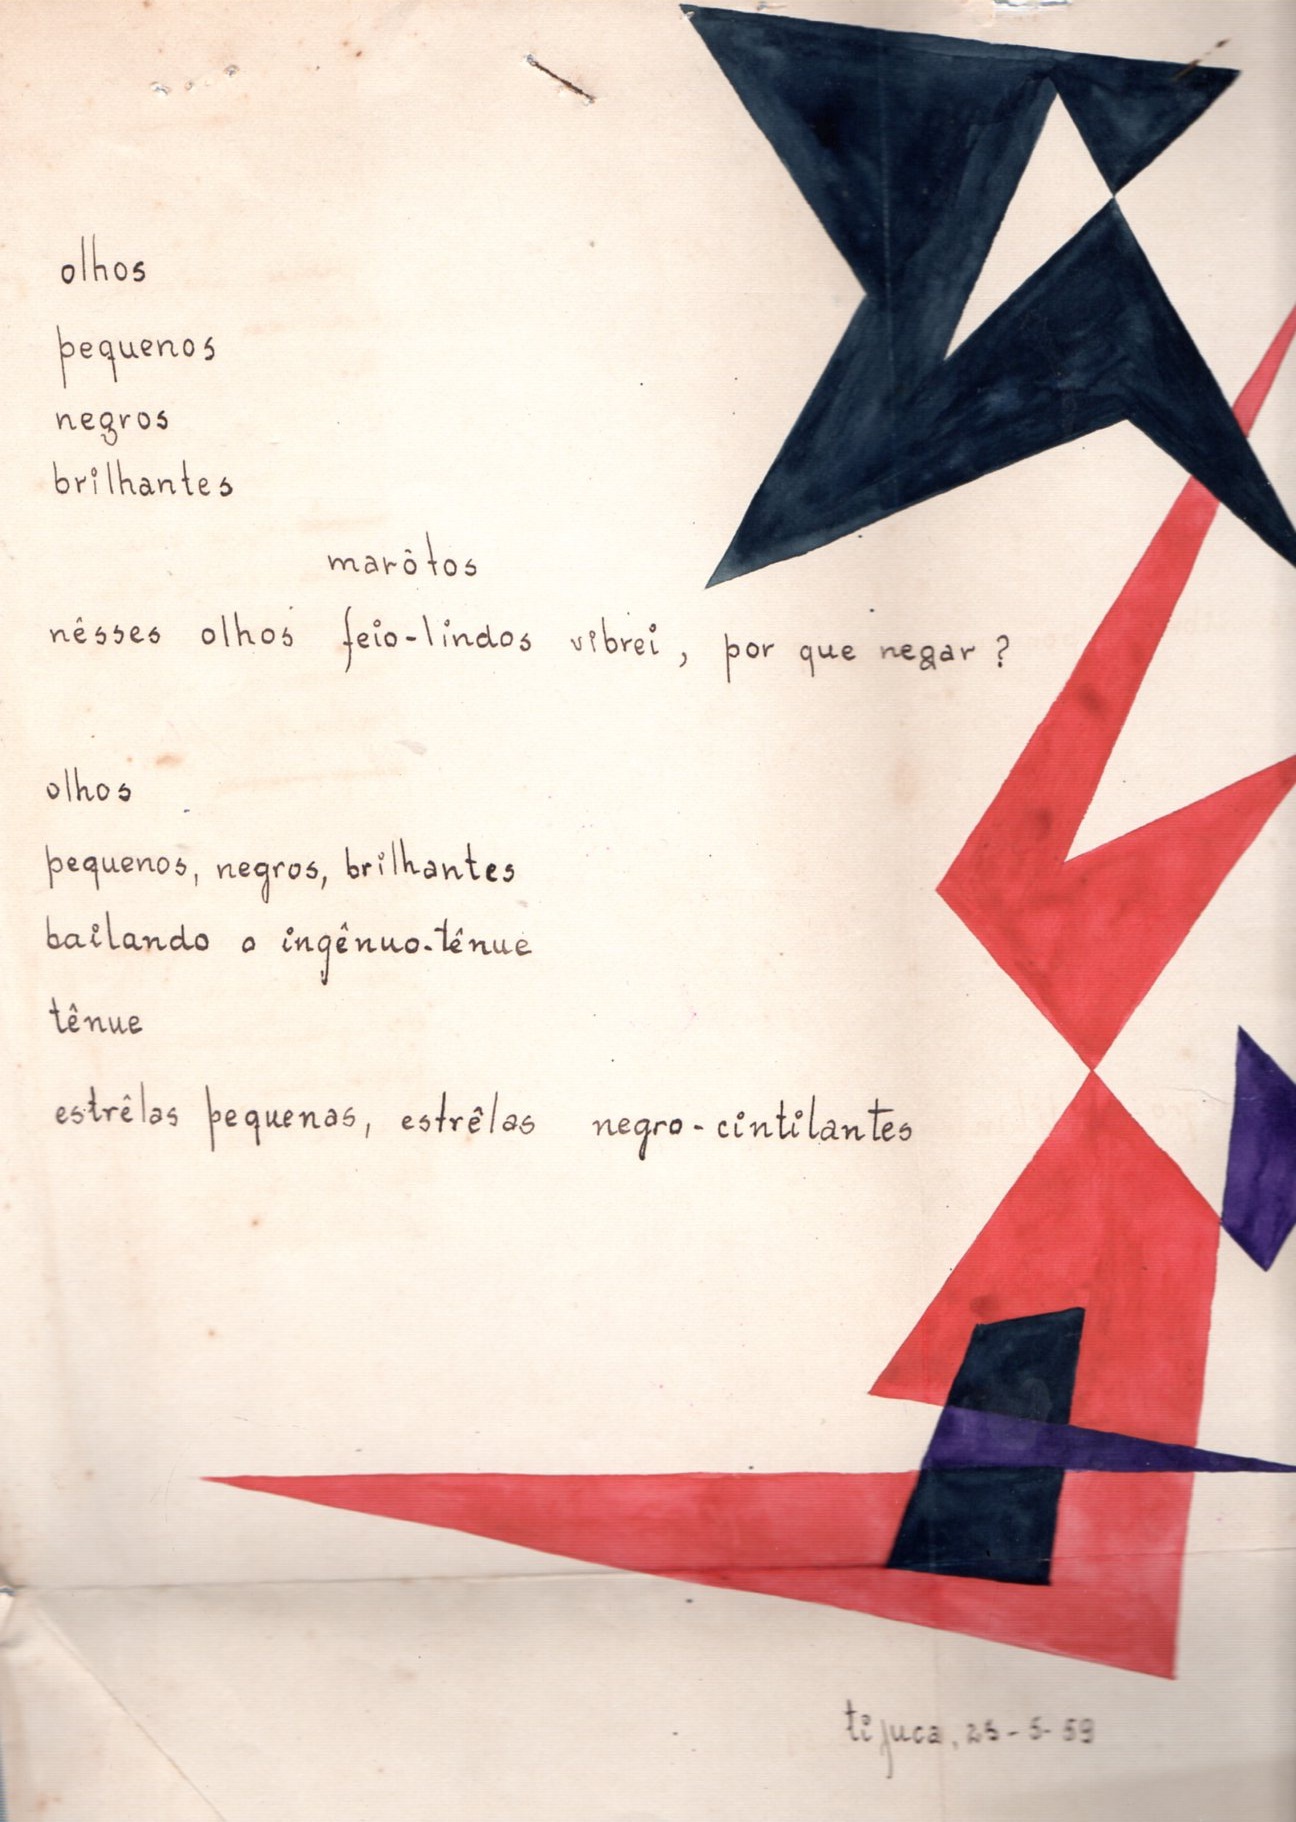 olhos
pequenos
negros
brilhantes
marôtos
nêsses olhos feio-lindos vibrei, por que negar?
olhos
pequenos, negros, brilhantes
bailando o ingênuo-tênue
tênue
estrêlas pequenas, estrêlas negro-cintilantes
tijuca, 25-5-59